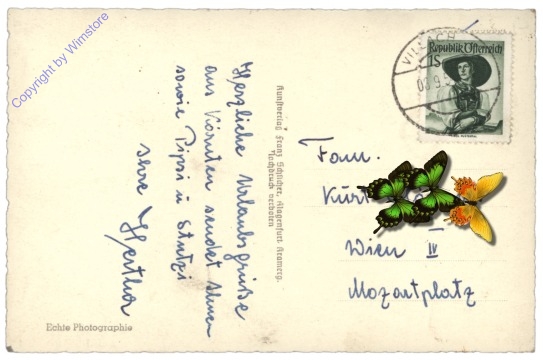 Copyright by Wimstore
Herzliche Urlaubsgrüße
aus Kärnten sendet Ihnen
sowie Pipsi u Stutzi
Ihre Hertha
Kunstverlag Franz Schilcher, Klagenfurt, Kramerg.
Nachdruck verboten
VILLACH
Republik Österreich
1S
Fam.
Kurt
Wien IV
Mozartplatz
Echte Photographie